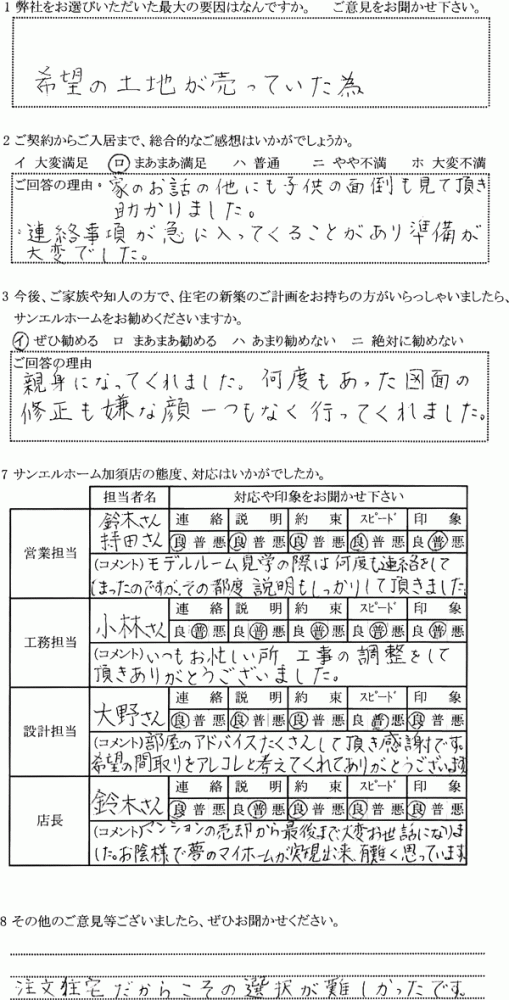 1 弊社をお選びいただいた最大の要因はなんですか。 ご意見をお聞かせ下さい。
希望の土地が売っていた為
2 ご契約からご入居まで、総合的なご感想はいかがでしょうか。
イ 大変満足 ロ まあまあ満足 ハ 普通 ニ やや不満 ホ 大変不満
ご回答の理由・家のお話の他にも子供の面倒も見て頂き
助かりました。
・連絡事項が急に入ってくることがあり準備が
大変でした。
3 今後、ご家族や知人の方で、住宅の新築のご計画をお持ちの方がいらっしゃいましたら、
サンエルホームをお勧めくださいますか。
イ ぜひ勧める ロ まあまあ勧める ハ あまり勧めない ニ 絶対に勧めない
ご回答の理由
親身になってくれました。何度もあった図面の
修正も嫌な顔一つもなく行ってくれました。
7 サンエルホーム加須店の態度、対応はいかがでしたか。
担当者名 対応や印象をお聞かせ下さい
営業担当 鈴木さん 持田さん 連絡 説明 約束 スピード 印象
良 普 悪 良 普 悪 良 普 悪 良 普 悪 良 普 悪
(コメント)モデルルーム見学の際は何度も連絡をして
しまったのですが、その都度説明もしっかりして頂きました。
工務担当 小林さん 連絡 説明 約束 スピード 印象
良 普 悪 良 普 悪 良 普 悪 良 普 悪 良 普 悪
(コメント)いつもお忙しい所 工事の調整をして
頂きありがとうございました。
設計担当 大野さん 連絡 説明 約束 スピード 印象
良 普 悪 良 普 悪 良 普 悪 良 普 悪 良 普 悪
(コメント)部屋のアドバイスたくさんして頂き感謝です。
希望の間取りをアレコレと考えてくれてありがとうございます
店長 鈴木さん 連絡 説明 約束 スピード 印象
良 普 悪 良 普 悪 良 普 悪 良 普 悪 良 普 悪
(コメント)マンションの売却から最後まで大変お世話になりま
した。お陰様で夢のマイホームが実現出来、有難く思っています
8 その他のご意見等ございましたら、ぜひお聞かせください。
注文住宅だからこその選択が難しかったです。